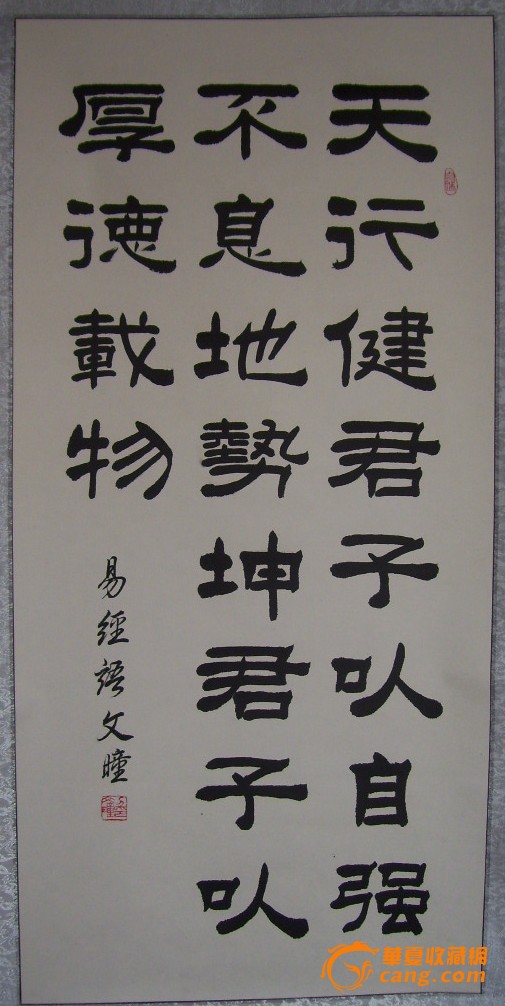 天行健君子以自强
不息地勢坤君子以
厚德載物
易經語文瞳
華夏收藏網
cang.com